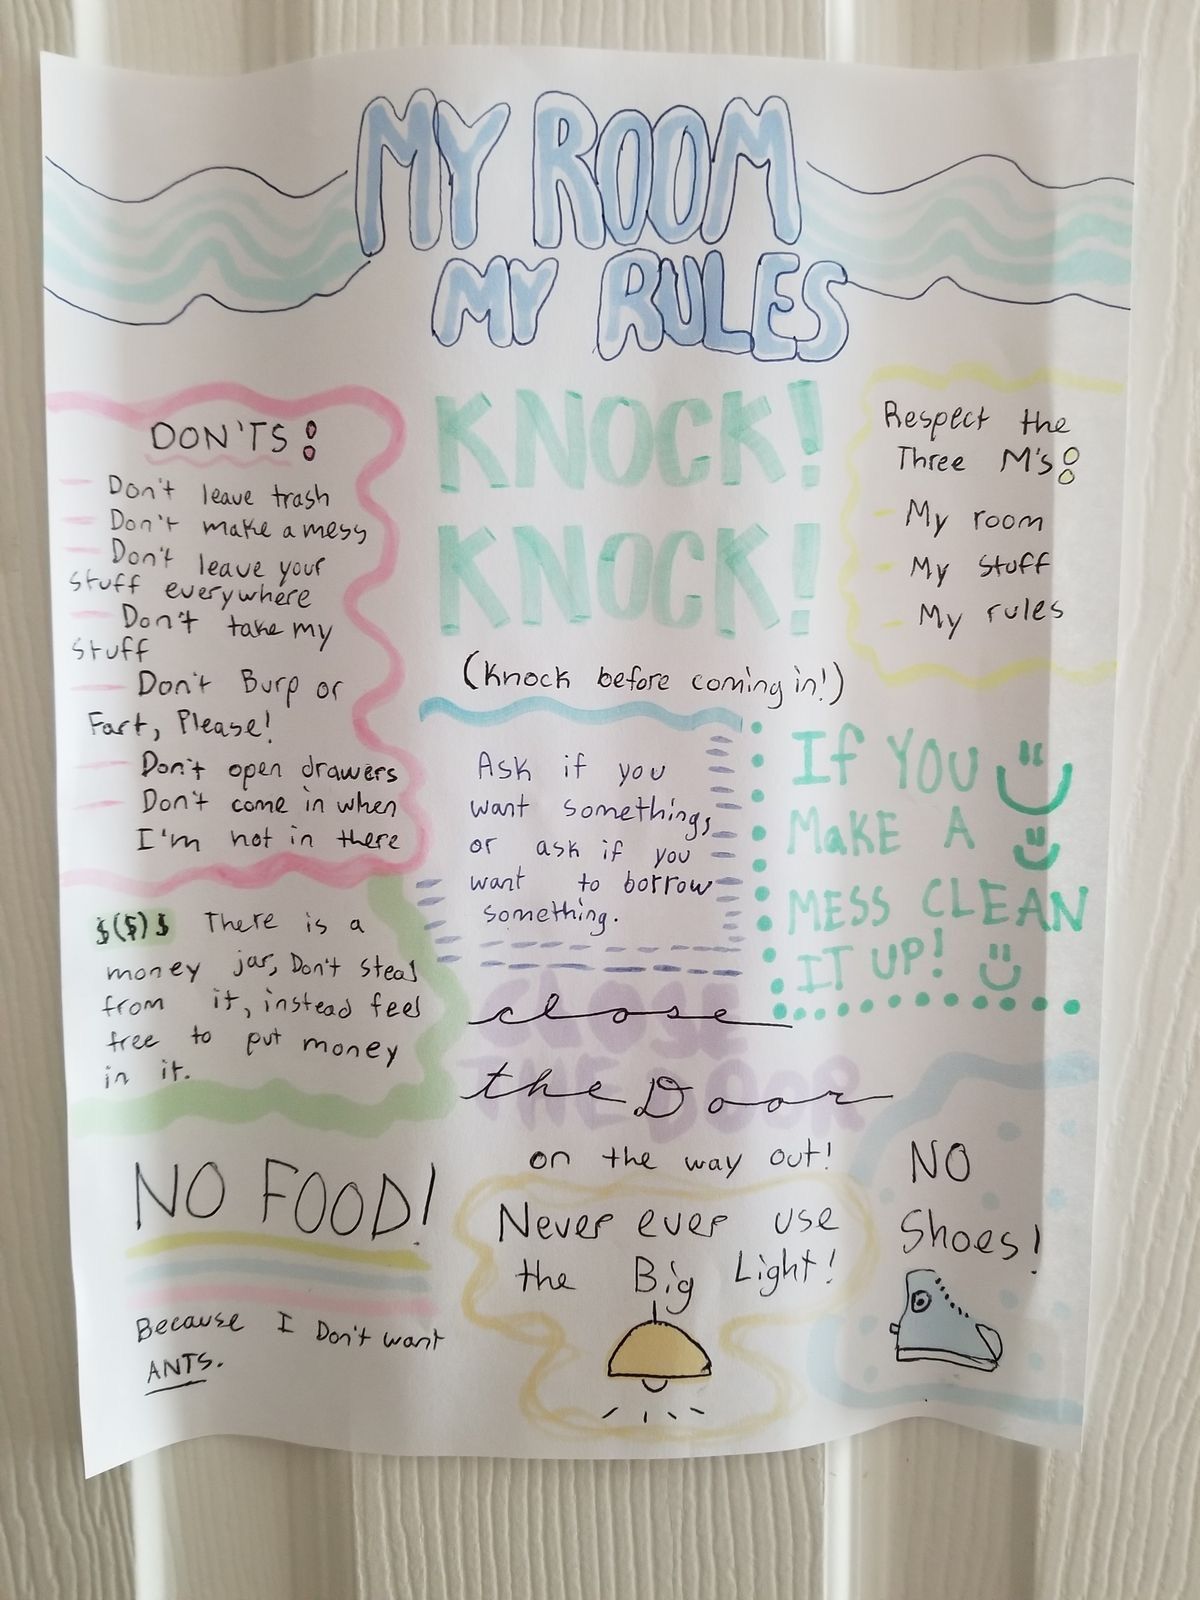 MY ROOM
MY RULES
DON'TS:
- Don't leave trash
- Don't make a mess
- Don't leave your
stuff everywhere
- Don't take my
stuff
- Don't Burp or
Fart, Please!
- Don't open drawers
- Don't come in when
I'm not in there
KNOCK!
KNOCK!
(Knock before coming in!)
Respect the
Three M's:
- My room
- My stuff
- My rules
Ask if you
want something,
or ask if you
want to borrow
something.
If YOU
MaKE A
MESS CLEAN
IT UP!
$($)$ There is a
money jar, Don't steal
from it, instead feel
free to put money
in it.
close
the Door
CLOSE
THE DOOR
on the way out!
NO FOOD!
Because I Don't want
ANTS.
Never ever use
the Big Light!
NO
Shoes!